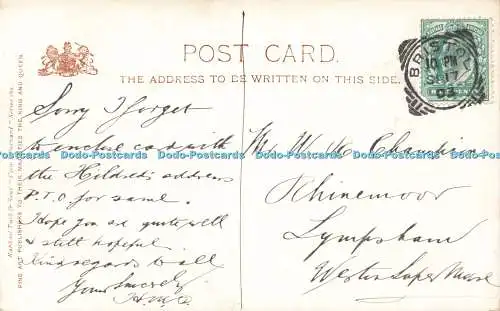 POST CARD.
THE ADDRESS TO BE WRITTEN ON THIS SIDE.
BRISTOL
10 PM
SP 17
Sorry I forgot
to enclose card with
the Hildred's address
P.T.O for same.
Hope you are quite well
& still hopeful.
Kind regards to all
Yours Sincerely
Mr W
Rhinemoor
Lympsham
Weston Super Mare
FINE ART PUBLISHERS TO THEIR MAJESTIES THE KING AND QUEEN.
Dodo-Postcards Dodo-Postcards Dodo-Postcards Dodo-Postcards Dodo-Postcards